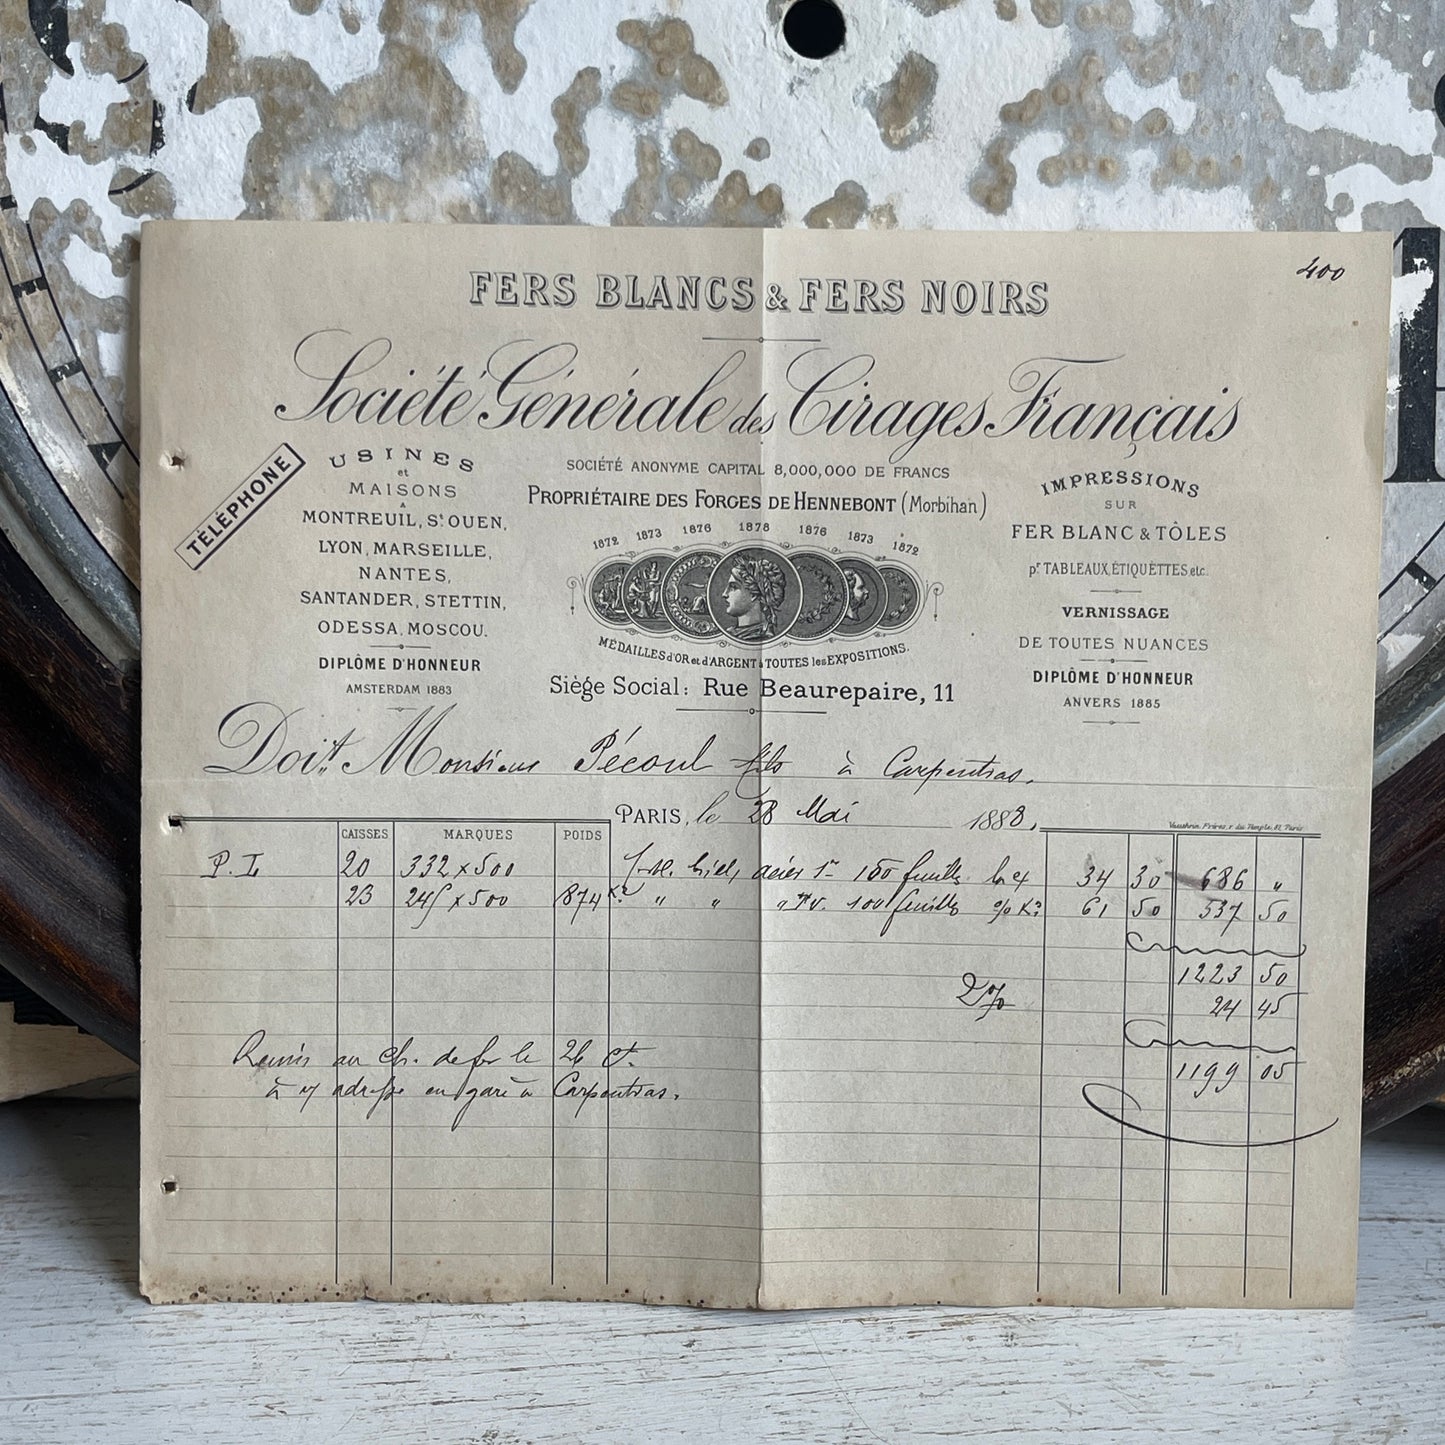 400
FERS BLANCS & FERS NOIRS
Société Générale des Cirages Français
TÉLÉPHONE
USINES
et
MAISONS
à
MONTREUIL, St OUEN,
LYON, MARSEILLE,
NANTES,
SANTANDER, STETTIN,
ODESSA, MOSCOU.
DIPLÔME D'HONNEUR
AMSTERDAM 1883
SOCIÉTÉ ANONYME CAPITAL 8,000,000 DE FRANCS
PROPRIÉTAIRE DES FORGES DE HENNEBONT (Morbihan)
1872 1873 1876 1878 1876 1873 1872
MÉDAILLES d'OR et d'ARGENT à TOUTES les EXPOSITIONS.
Siège Social: Rue Beaurepaire, 11
IMPRESSIONS
SUR
FER BLANC & TÔLES
pr TABLEAUX, ÉTIQUETTES, etc.
VERNISSAGE
DE TOUTES NUANCES
DIPLÔME D'HONNEUR
ANVERS 1885
Doit Monsieur Pécoul fils à Carpentras.
PARIS, le 28 Mai 1888.
Vauthrin, Frères, r. du Temple, 81, Paris
CAISSES MARQUES POIDS
P. L 20 332 x 500 acier 150 feuilles 34 30 686 "
23 245 x 500 874 K° " " " 100 feuilles % K° 61 50 537 50
1223 50
2 % 24 45
1199 05
Remis au ch. de fer le 26 ct.
à adresse en gare à Carpentras.